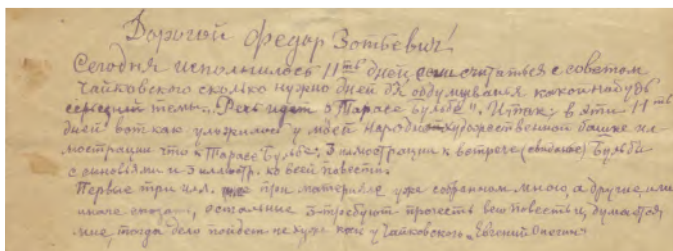 Дорогой Федор Зотьевич!
Сегодня исполнилось 11ть дней если считаться с советом
Чайковского сколько нужно дней для обдумывания какой нибудь
серьезной темы... Речь идет о "Тарасе Бульбе". Итак: в эти 11ть
дней вот как уложилось у моей народно-художественной башке ил-
люстрации что к Тарасе Бульбе: 3 иллюстрации к встрече (свидание) Бульбы
с сыновьями и 3 иллюстр. ко всей повести.
Первые три илл. при материале уже собранном мною, а другие, или
иначе сказать, остальные 3 требуют прочесть всю повесть и, думается
мне, тогда дело пойдет не хуже как у Чайковского "Евгений Онегин"